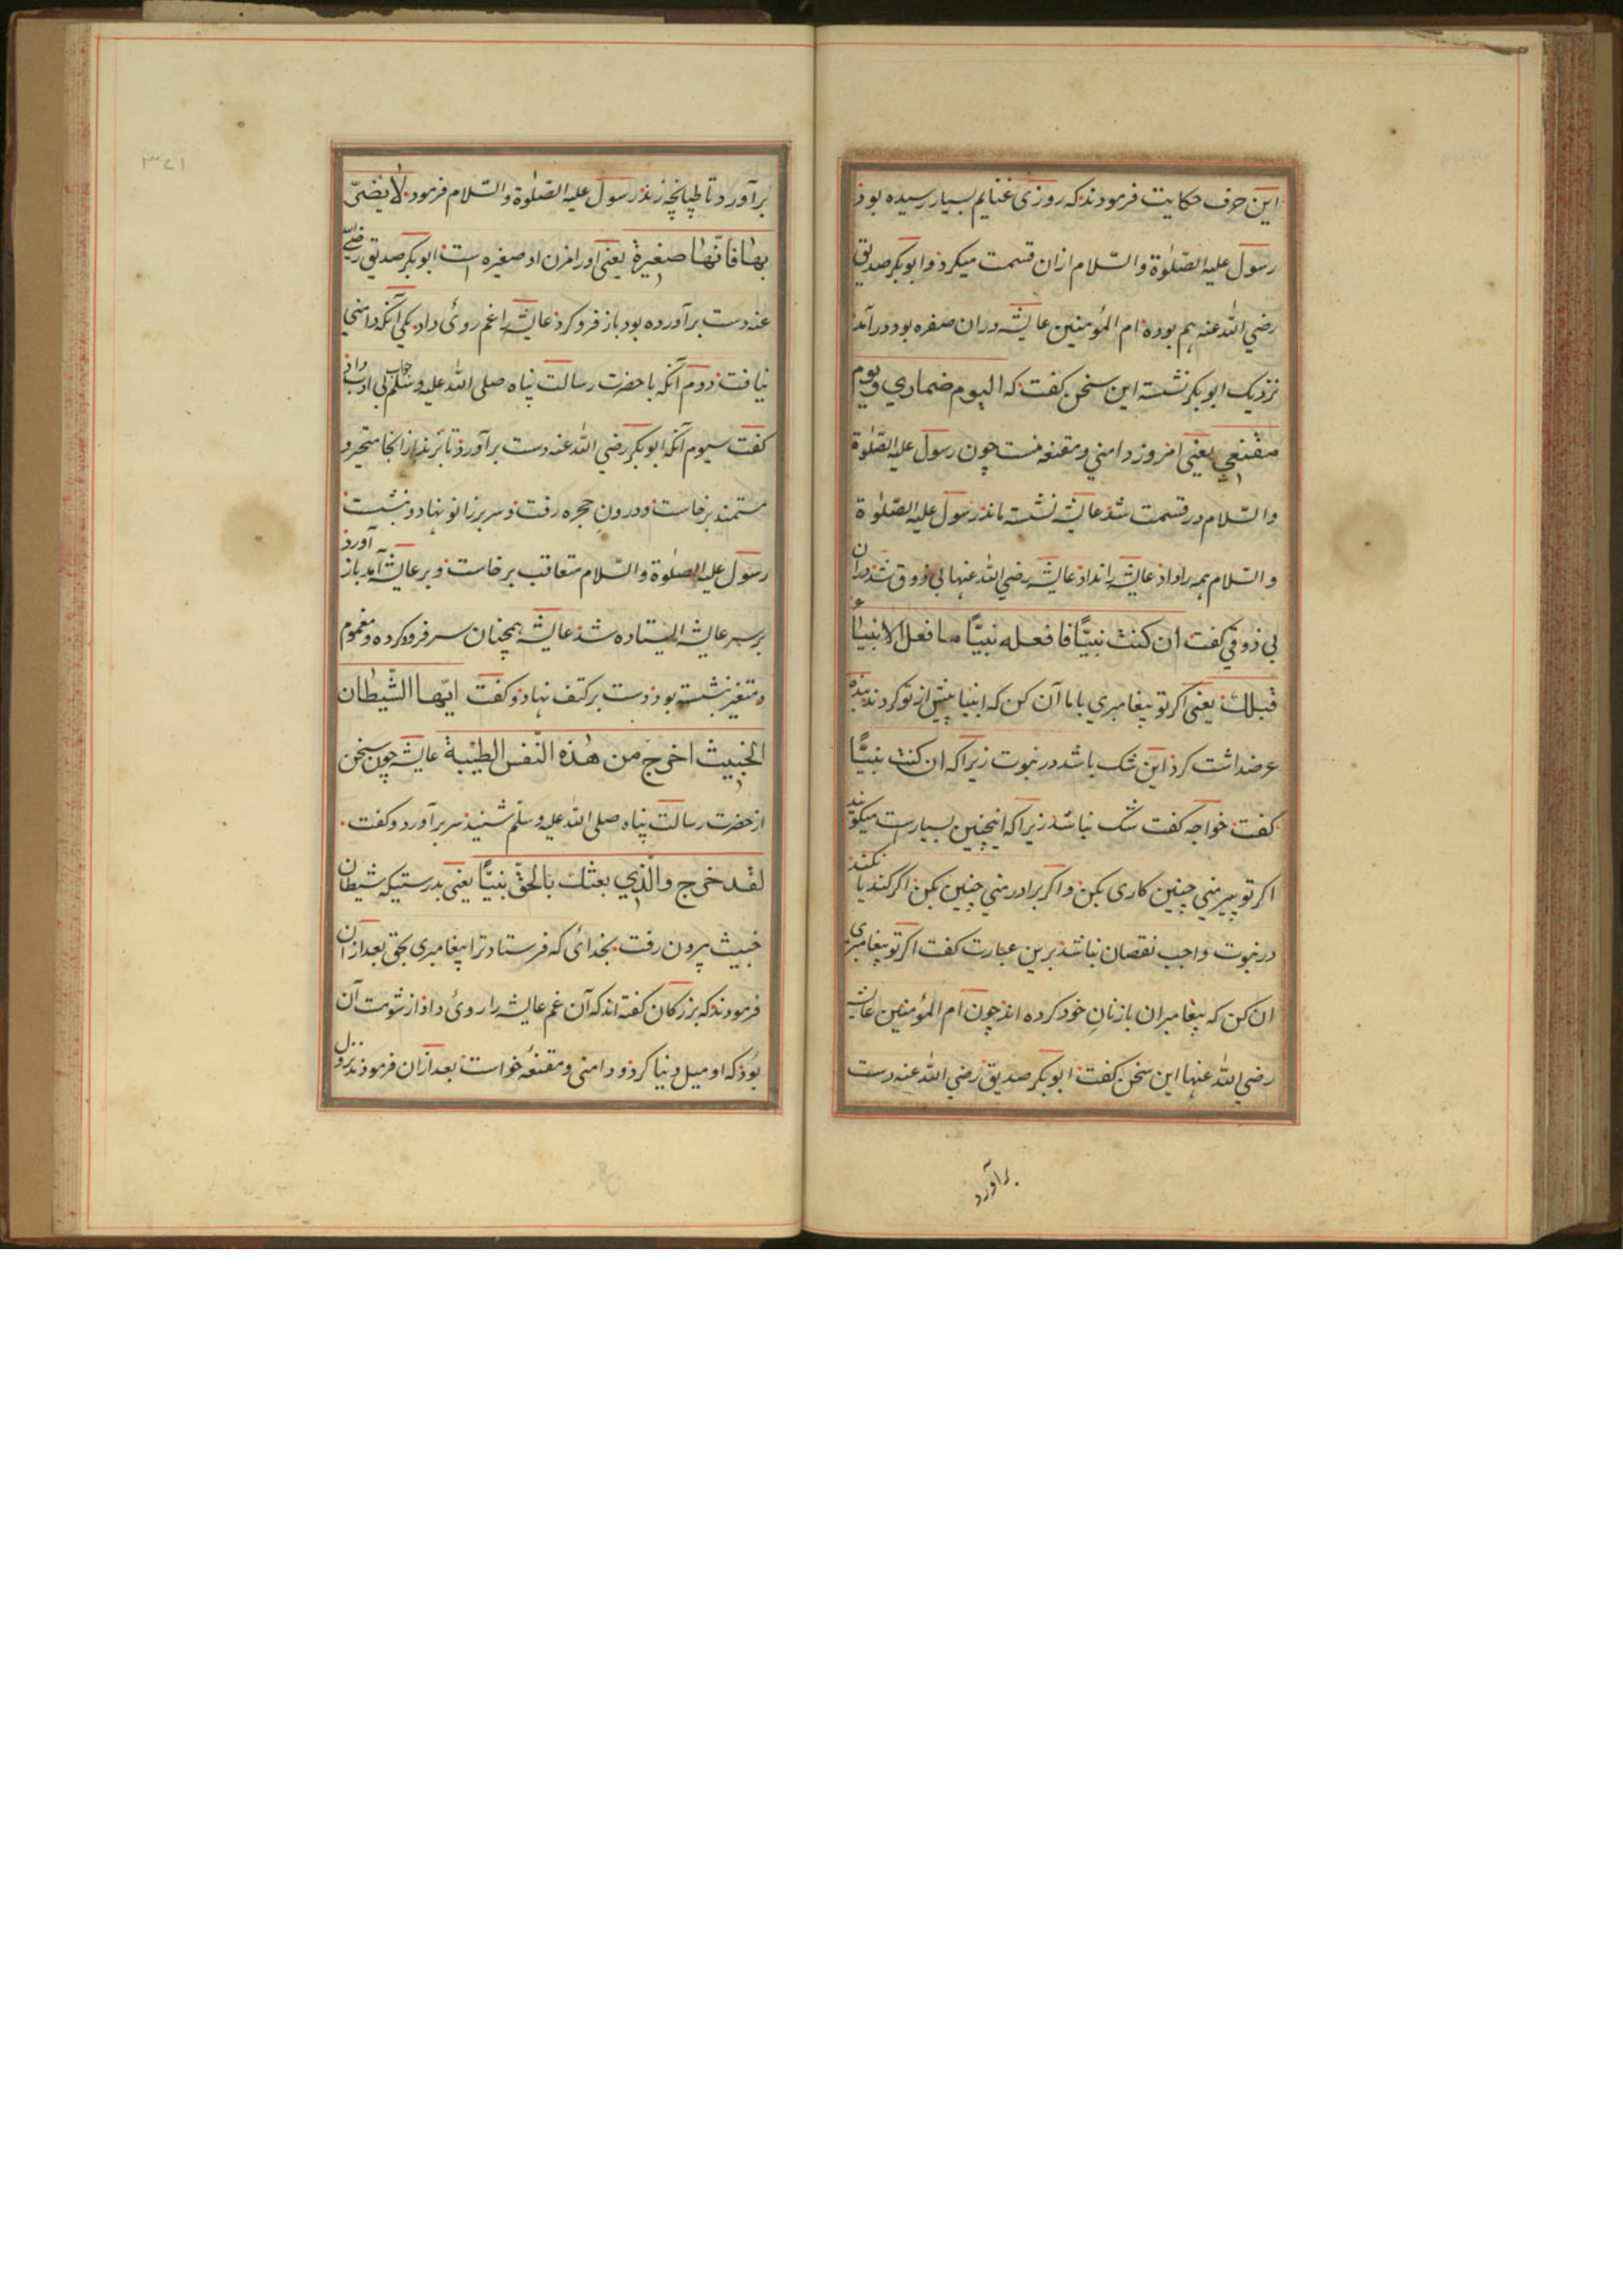 این حرف حکایت فرمودند که روزی غنایم بسیار رسیده بود
رسول علیه الصلوة والسلام ازان قسمت میکرد و ابوبکر صدیق
رضی الله عنه هم بوده ام المؤمنین عایشه دران صفره بود درآمد
نزدیک ابوبکر نشسته این سخن گفت که الیوم ضماری ویوم
مقنعی یعنی امروز دامنی و مقنعه منست چون رسول علیه الصلوة
والسلام در قسمت شد عایشه نشسته ماند رسول علیه الصلوة
والسلام همه را داد عایشه را نداد عایشه رضی الله عنها بی ذوق شد دران
بی ذوقی گفت ان کنت نبیّا فافعله نبیّا ما فعل الانبیاء
قبلک یعنی اگر تو پیغامبری باما آن کن که انبیا پیش از تو کردند بنده
عرضداشت کرد این شک باشد در نبوت زیرا که ان کنت نبیّا
گفت خواجه گفت شک نباشد زیرا که اینچنین بسیارست میگویند
اگر تو پیر منی چنین کاری بکن و اگر برادر منی چنین بکن اگر کند یا نکند
در نبوت واجب نقصان نباشد برین عبارت گفت اگر تو پیغامبری
ان کن که پیغامبران بازنان خود کرده اند چون ام المؤمنین عایشه
رضی الله عنها این سخن گفت ابوبکر صدیق رضی الله عنه دست
برآورد
۳۷۱
برآورد تا طپانچه زند رسول علیه الصلوة والسلام فرمود لا یضیّ
بها فانّها صغیرة یعنی اورا مزن او صغیره است ابوبکر صدیق رضی الله
عنه دست برآورده بود باز فرو کرد عایشه را غم روئ داد یکی آنکه دامنی
نیافت دوم آنکه باحضرت رسالت پناه صلی الله علیه وسلم بی ادب جواب داد
گفت سیوم آنکه ابوبکر رضی الله عنه دست برآورد تا بزند ازانجا متحیر و
مستمند برخاست و درون حجره رفت و سر بر زانو نهاد و بنشست
رسول علیه الصلوة والسلام متعاقب برخاست و بر عایشه آمد باز آورد
بر سر عایشه ایستاده شد عایشه همچنان سر فرود کرده و مغموم
و متغیر نشسته بود دست بر کتف نهاد و گفت ایّها الشّیطان
الخبیث اخرج من هذه النّفس الطیّبة عایشه چون سخن
از حضرت رسالت پناه صلی الله علیه وسلم شنید سر برآورد و گفت
لقد خرج والّذی بعثک بالحقّ نبیّا یعنی بدرستیکه شیطان
خبیث بیرون رفت بخدائی که فرستاد ترا پیغامبری بحق بعد ازان
فرمودند که بزرگان گفته اند که آن غم عایشه را روئ داد از شومت آن
بود که او میل دنیا کرد و دامنی و مقنعه خواست بعد ازان فرمودند